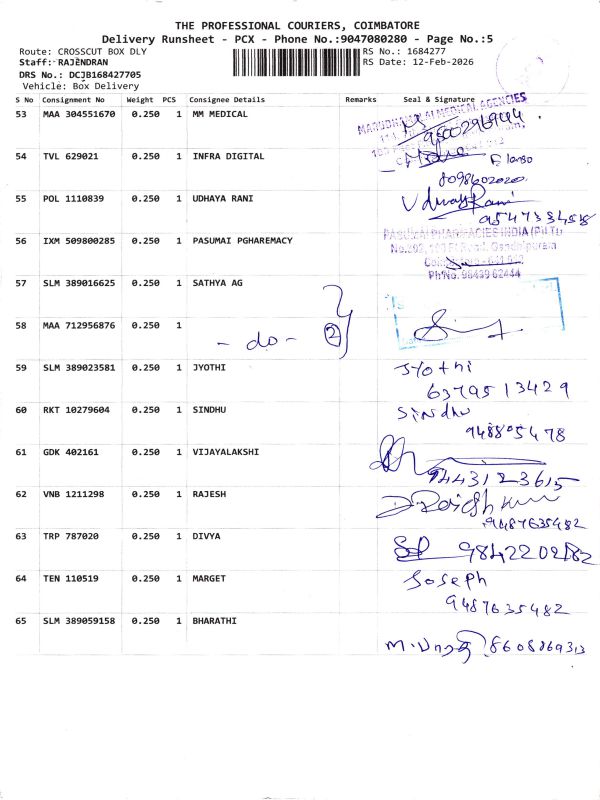 THE PROFESSIONAL COURIERS, COIMBATORE
Delivery Runsheet - PCX - Phone No.:9047080280 - Page No.:5
Route: CROSSCUT BOX DLY RS No.: 1684277
Staff: RAJENDRAN RS Date: 12-Feb-2026
DRS No.: DCJB168427705
Vehicle: Box Delivery
S No Consignment No Weight PCS Consignee Details Remarks Seal & Signature
53 MAA 304551670 0.250 1 MM MEDICAL
MEDICAL AGENCIES
54 TVL 629021 0.250 1 INFRA DIGITAL
8098602020
55 POL 1110839 0.250 1 UDHAYA RANI Udhaya Rani
9547334518
56 IXM 509800285 0.250 1 PASUMAI PGHAREMACY PASUMAI PHARMACIES INDIA (P) LTD
Ph No. 98439 62444
57 SLM 389016625 0.250 1 SATHYA AG
58 MAA 712956876 0.250 1
- do - 2
59 SLM 389023581 0.250 1 JYOTHI Jyothi
6379513429
60 RKT 10279604 0.250 1 SINDHU Sindhu
948805478
61 GDK 402161 0.250 1 VIJAYALAKSHI
9443123615
62 VNB 1211298 0.250 1 RAJESH
9487635482
63 TRP 787020 0.250 1 DIVYA 9842202182
64 TEN 110519 0.250 1 MARGET Joseph
9487635482
65 SLM 389059158 0.250 1 BHARATHI
M. பாரதி 8608869313